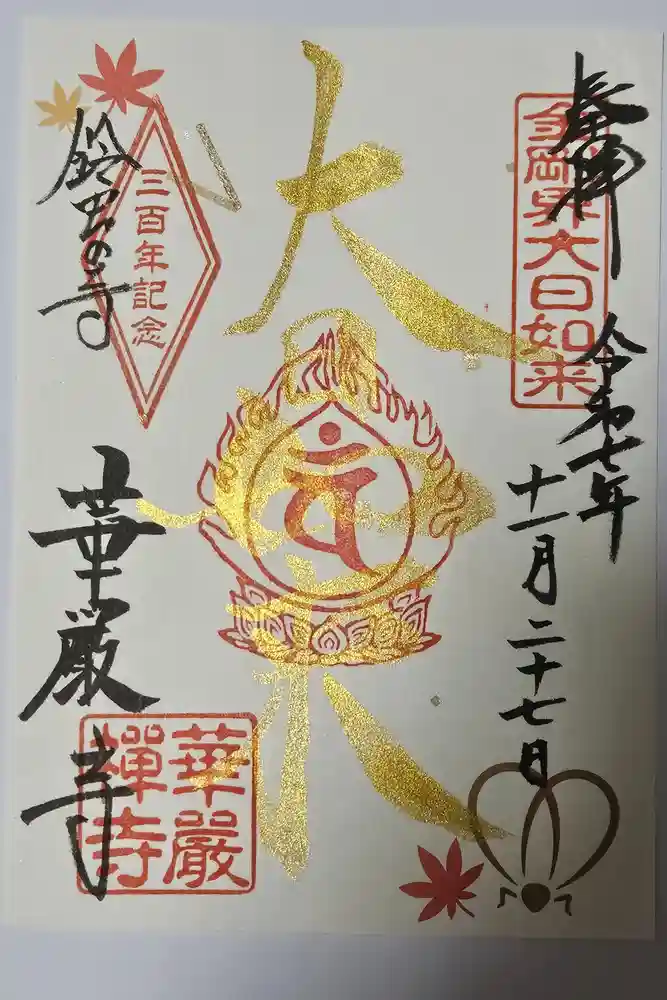 登拝
金剛界大日如来
令和七年
十一月二十七日
大日如来
三百年記念
鈴虫の寺
華厳寺
華嚴
禪寺